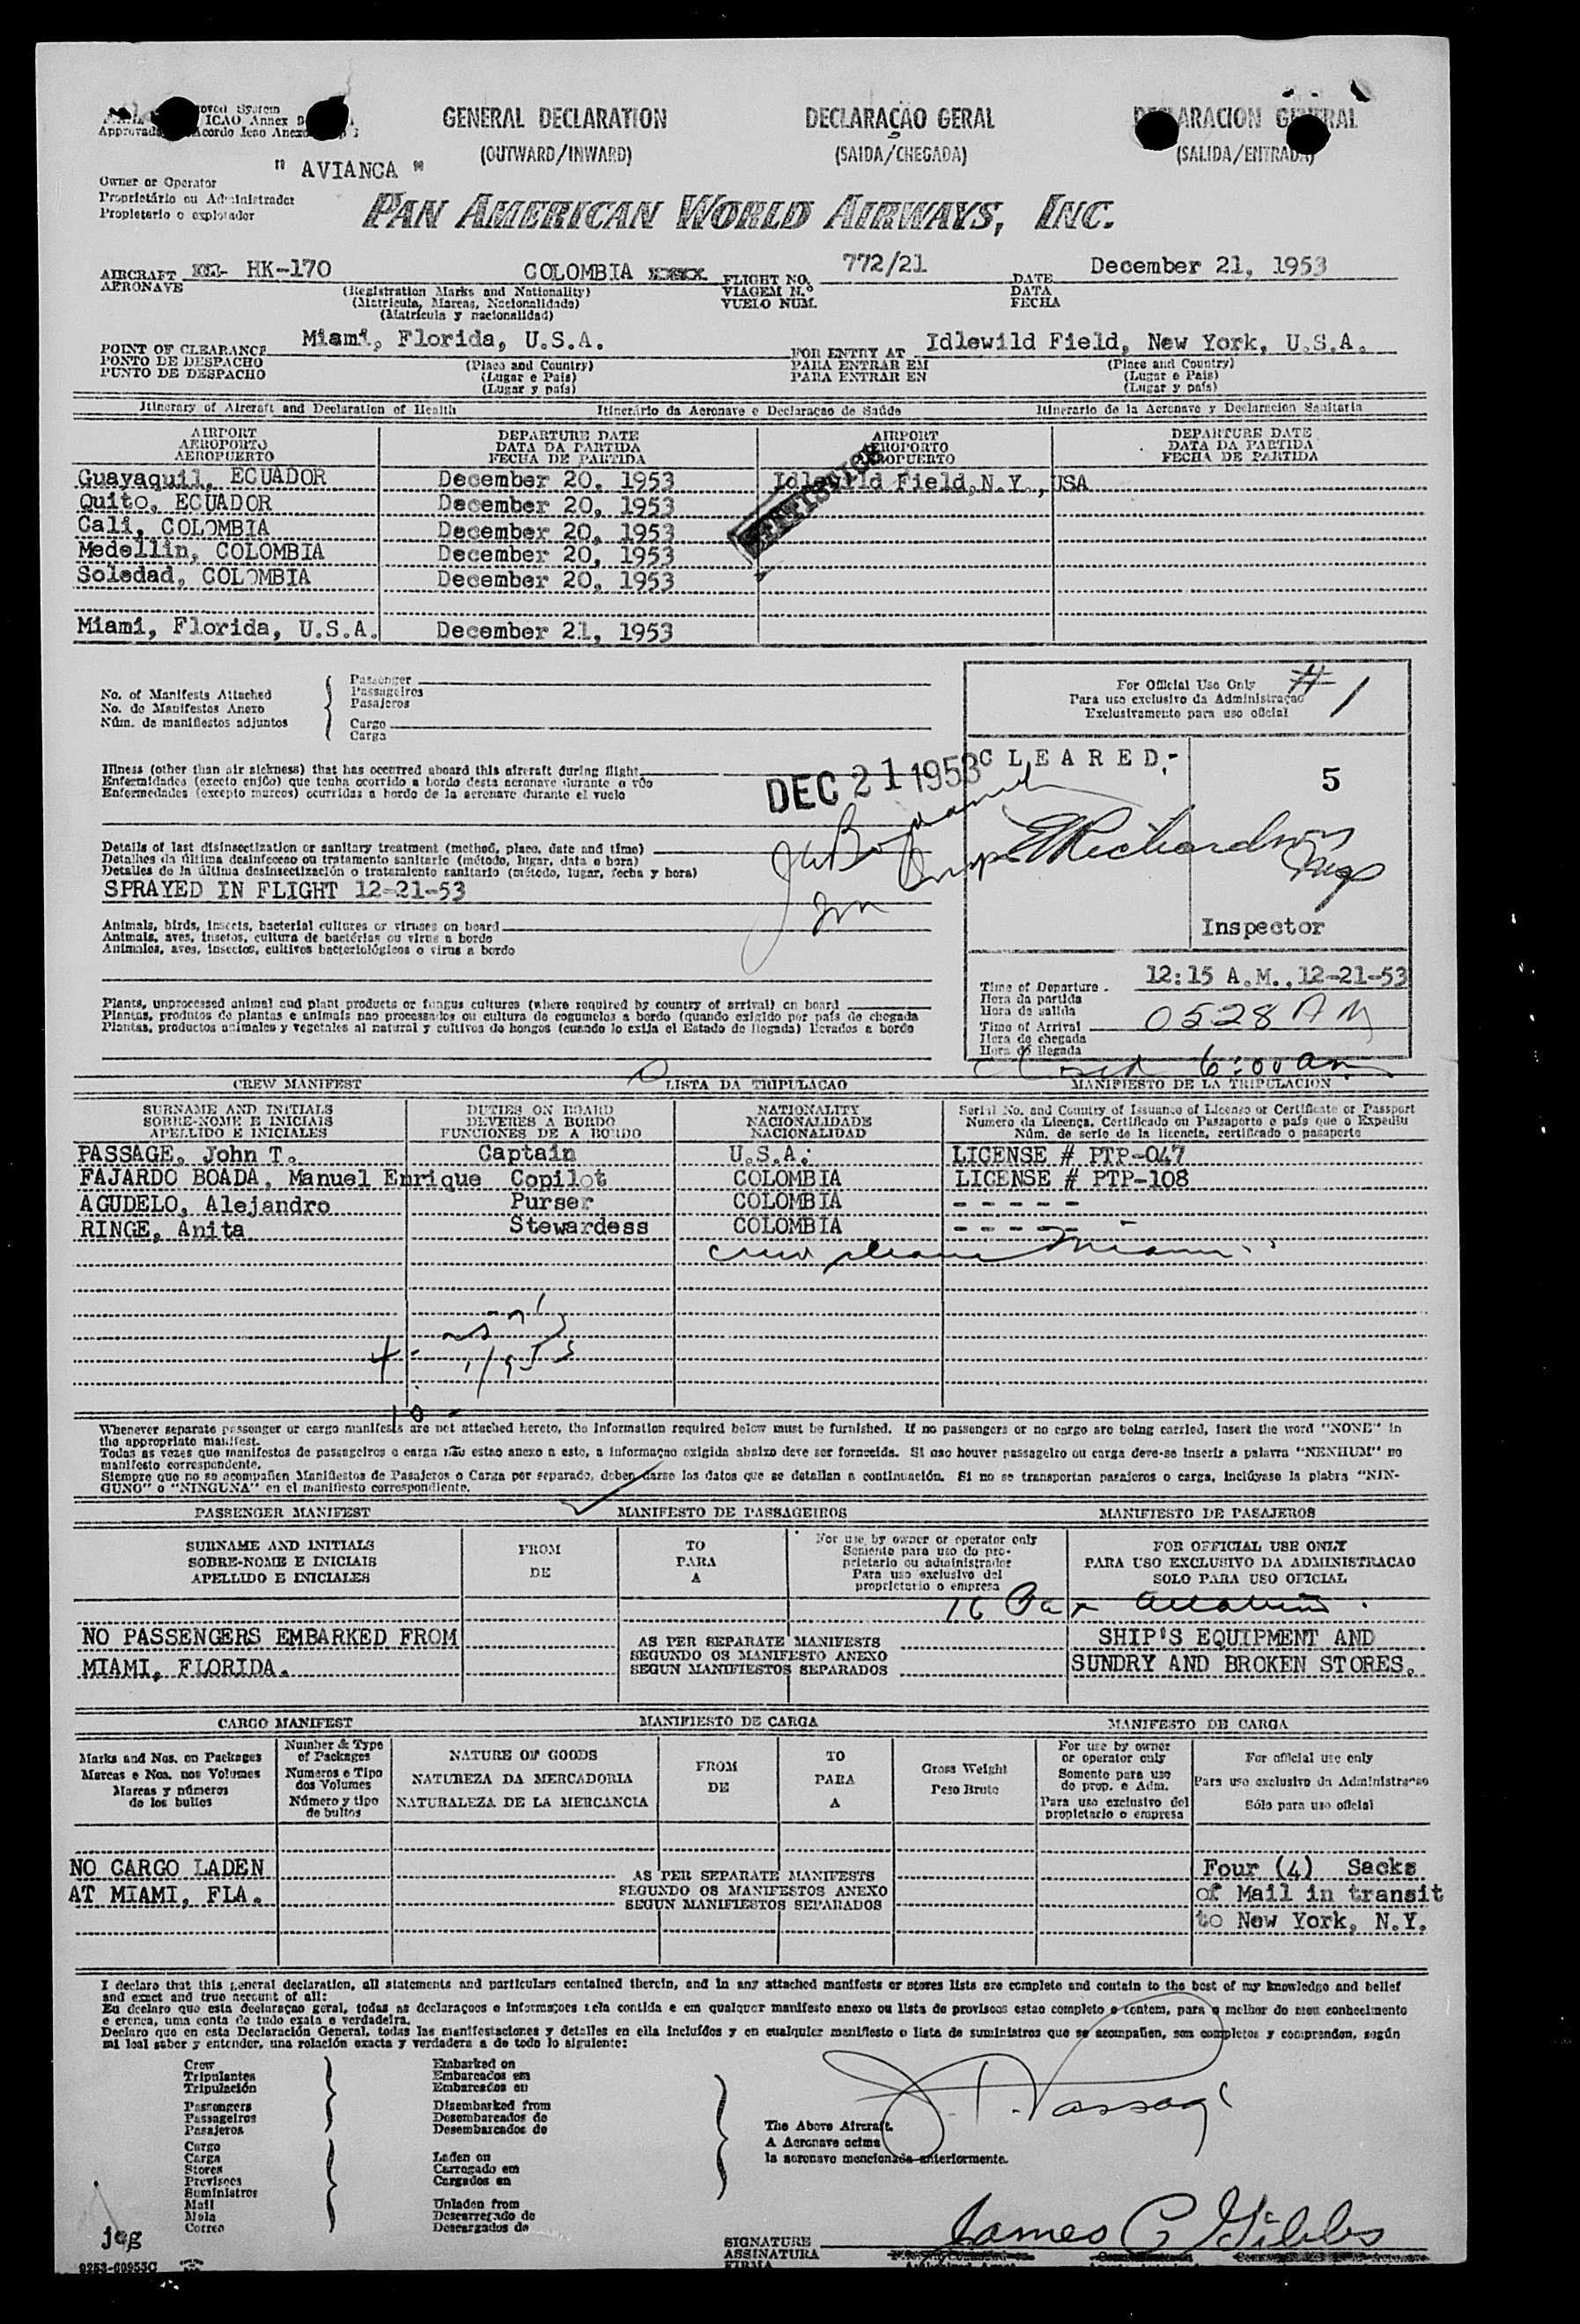 GENERAL DECLARATION DECLARAÇAO GERAL
(OUTWARD/INWARD) (SAIDA/CHEGADA) (SALIDA/ENTRADA)
" AVIANCA "
Owner or Operator
Proprietário ou Administrador
Propietario o explotador
PAN AMERICAN WORLD AIRWAYS, INC.
AIRCRAFT HK-170 COLOMBIA FLIGHT NO. 772/21 DATE December 21, 1953
AERONAVE (Registration Marks and Nationality) VIAGEM N.º DATA
(Matricula, Marcas, Nacionalidade) VUELO NUM. FECHA
(Matrícula y nacionalidad)
POINT OF CLEARANCE Miami, Florida, U.S.A. FOR ENTRY AT Idlewild Field, New York, U.S.A.
PONTO DE DESPACHO (Place and Country) PARA ENTRAR EM (Place and Country)
PUNTO DE DESPACHO (Lugar e Pais) PARA ENTRAR EN (Lugar e Pais)
(Lugar y país) (Lugar y país)
Itinerary of Aircraft and Declaration of Health Itinerário da Aeronave e Declaraçao de Saúde Itinerario de la Aeronave y Declaracion Sanitaria
AIRPORT DEPARTURE DATE AIRPORT DEPARTURE DATE
AEROPORTO DATA DA PARTIDA AEROPORTO DATA DA PARTIDA
AEROPUERTO FECHA DE PARTIDA AEROPUERTO FECHA DE PARTIDA
Guayaquil, ECUADOR December 20, 1953 Idlewild Field, N.Y., USA
Quito, ECUADOR December 20, 1953
Cali, COLOMBIA December 20, 1953
Medellin, COLOMBIA December 20, 1953
Soledad, COLOMBIA December 20, 1953
Miami, Florida, U.S.A. December 21, 1953
Passenger
No. of Manifests Attached Passageiros
No. de Manifestos Anexo Pasajeros
Núm. de manifiestos adjuntos Cargo
Carga
For Official Use Only # 1
Para uso exclusivo da Administraçao
Exclusivamente para uso oficial
CLEARED;-
5
Illness (other than air sickness) that has occurred aboard this aircraft during flight
Enfermidades (exceto enjôo) que tenha ocorrido a bordo desta aeronave durante o vôo
Enfermedades (excepto mareos) ocurridas a bordo de la aeronave durante el vuelo
DEC 21 1953
Details of last disinsectization or sanitary treatment (method, place, date and time)
Detalhes da última desinfeccao ou tratamento sanitario (método, lugar, data e hora)
Detalles de la última desinsectización o tratamiento sanitario (método, lugar, fecha y hora)
SPRAYED IN FLIGHT 12-21-53
E Richardson
Insp
Inspector
Animals, birds, insects, bacterial cultures or viruses on board
Animais, aves, insetos, cultura de bactérias ou virus a bordo
Animales, aves, insectos, cultivos bacteriológicos o virus a bordo
Time of Departure 12:15 A.M., 12-21-53
Hora da partida
Hora de salida
Time of Arrival 0528 AM
Hora de chegada
Hora de llegada
6:00 am
Plants, unprocessed animal and plant products or fungus cultures (where required by country of arrival) on board
Plantas, produtos de plantas e animais nao processados ou cultura de cogumelos a bordo (quando exigido por país de chegada
Plantas, productos animales y vegetales al natural y cultivos de hongos (cuando lo exija el Estado de llegada) llevados a bordo
CREW MANIFEST LISTA DA TRIPULACAO MANIFIESTO DE LA TRIPULACION
SURNAME AND INITIALS DUTIES ON BOARD NATIONALITY Serial No. and Country of Issuance of License or Certificate or Passport
SOBRE-NOME E INICIAIS DEVERES A BORDO NACIONALIDADE Numero da Licença, Certificado ou Passaporte e país que o Expediu
APELLIDO E INICIALES FUNCIONES DE A BORDO NACIONALIDAD Núm. de serie de la licencia, certificado o pasaporte
PASSAGE, John T. Captain U.S.A. LICENSE # PTP-047
FAJARDO BOADA, Manuel Enrique Copilot COLOMBIA LICENSE # PTP-108
AGUDELO, Alejandro Purser COLOMBIA - - - - -
RINGE, Anita Stewardess COLOMBIA - - - - -
Whenever separate passenger or cargo manifests are not attached hereto, the information required below must be furnished. If no passengers or no cargo are being carried, insert the word "NONE" in
the appropriate manifest.
Todas as vezes que manifestos de passageiros e carga não estao anexo a este, a informaçao exigida abaixo deve ser fornecida. Si nao houver passageiro ou carga deve-se inserir a palavra "NENHUM" no
manifesto correspondente.
Siempre que no se acompañen Manifiestos de Pasajeros o Carga por separado, deben darse los datos que se detallan a continuación. Si no se transportan pasajeros o carga, inclúyase la plabra "NIN-
GUNO" o "NINGUNA" en el manifiesto correspondiente.
PASSENGER MANIFEST MANIFESTO DE PASSAGEIROS MANIFIESTO DE PASAJEROS
SURNAME AND INITIALS FROM TO For use by owner or operator only FOR OFFICIAL USE ONLY
SOBRE-NOME E INICIAIS DE PARA Somente para uso do pro-prietario ou administrador PARA USO EXCLUSIVO DA ADMINISTRACAO
APELLIDO E INICIALES A Para uso exclusivo del propietario o empresa SOLO PARA USO OFICIAL
16 Pax
NO PASSENGERS EMBARKED FROM AS PER SEPARATE MANIFESTS SHIP'S EQUIPMENT AND
MIAMI, FLORIDA. SEGUNDO OS MANIFESTO ANEXO SUNDRY AND BROKEN STORES.
SEGUN MANIFIESTOS SEPARADOS
CARGO MANIFEST MANIFIESTO DE CARGA MANIFESTO DE CARGA
Marks and Nos. on Packages Number & Type of Packages NATURE OF GOODS FROM TO Gross Weight For use by owner or operator only For official use only
Marcas e Nos. nos Volumes Numeros e Tipo dos Volumes NATUREZA DA MERCADORIA DE PARA Peso Bruto Somento para uso do prop. e Adm. Para uso exclusivo da Administraçao
Marcas y números de los bultos Número y tipo de bultos NATURALEZA DE LA MERCANCIA A Para uso exclusivo del propietario o empresa Sólo para uso oficial
NO CARGO LADEN AS PER SEPARATE MANIFESTS Four (4) Sacks
AT MIAMI, FLA. SEGUNDO OS MANIFESTOS ANEXO of Mail in transit
SEGUN MANIFIESTOS SEPARADOS to New York, N.Y.
I declare that this general declaration, all statements and particulars contained therein, and in any attached manifests or stores lists are complete and contain to the best of my knowledge and belief
and exact and true account of all:
Eu declaro que esta declaraçao geral, todas as declaraçoes e informaçoes nela contida e em qualquer manifesto anexo ou lista de provisoes estao completo e contem, para o melhor do meu conhecimento
e crenca, uma conta de tudo exata e verdadeira.
Declaro que en esta Declaración General, todas las manifestaciones y detalles en ella incluídos y en cualquier manifiesto o lista de suministros que se acompañen, son completos y comprenden, según
mi leal saber y entender, una relación exacta y verdadera a de todo lo siguiente:
Crew Embarked on
Tripulantes Embarcados em
Tripulación Embarcados en
Passengers Disembarked from
Passageiros Desembarcados de
Pasajeros Desembarcados de
Cargo
Carga Laden on
Stores Carregado em
Previsoes Cargados en
Suministros
Mail Unladen from
Mala Descarregado de
Correo Descargados de
The Above Aircraft.
A Aeronave acima
la aeronave mencionada anteriormente.
J. T. Passage
jeg
SIGNATURE James C Gibbs
ASSINATURA
FIRMA
9253-60955C